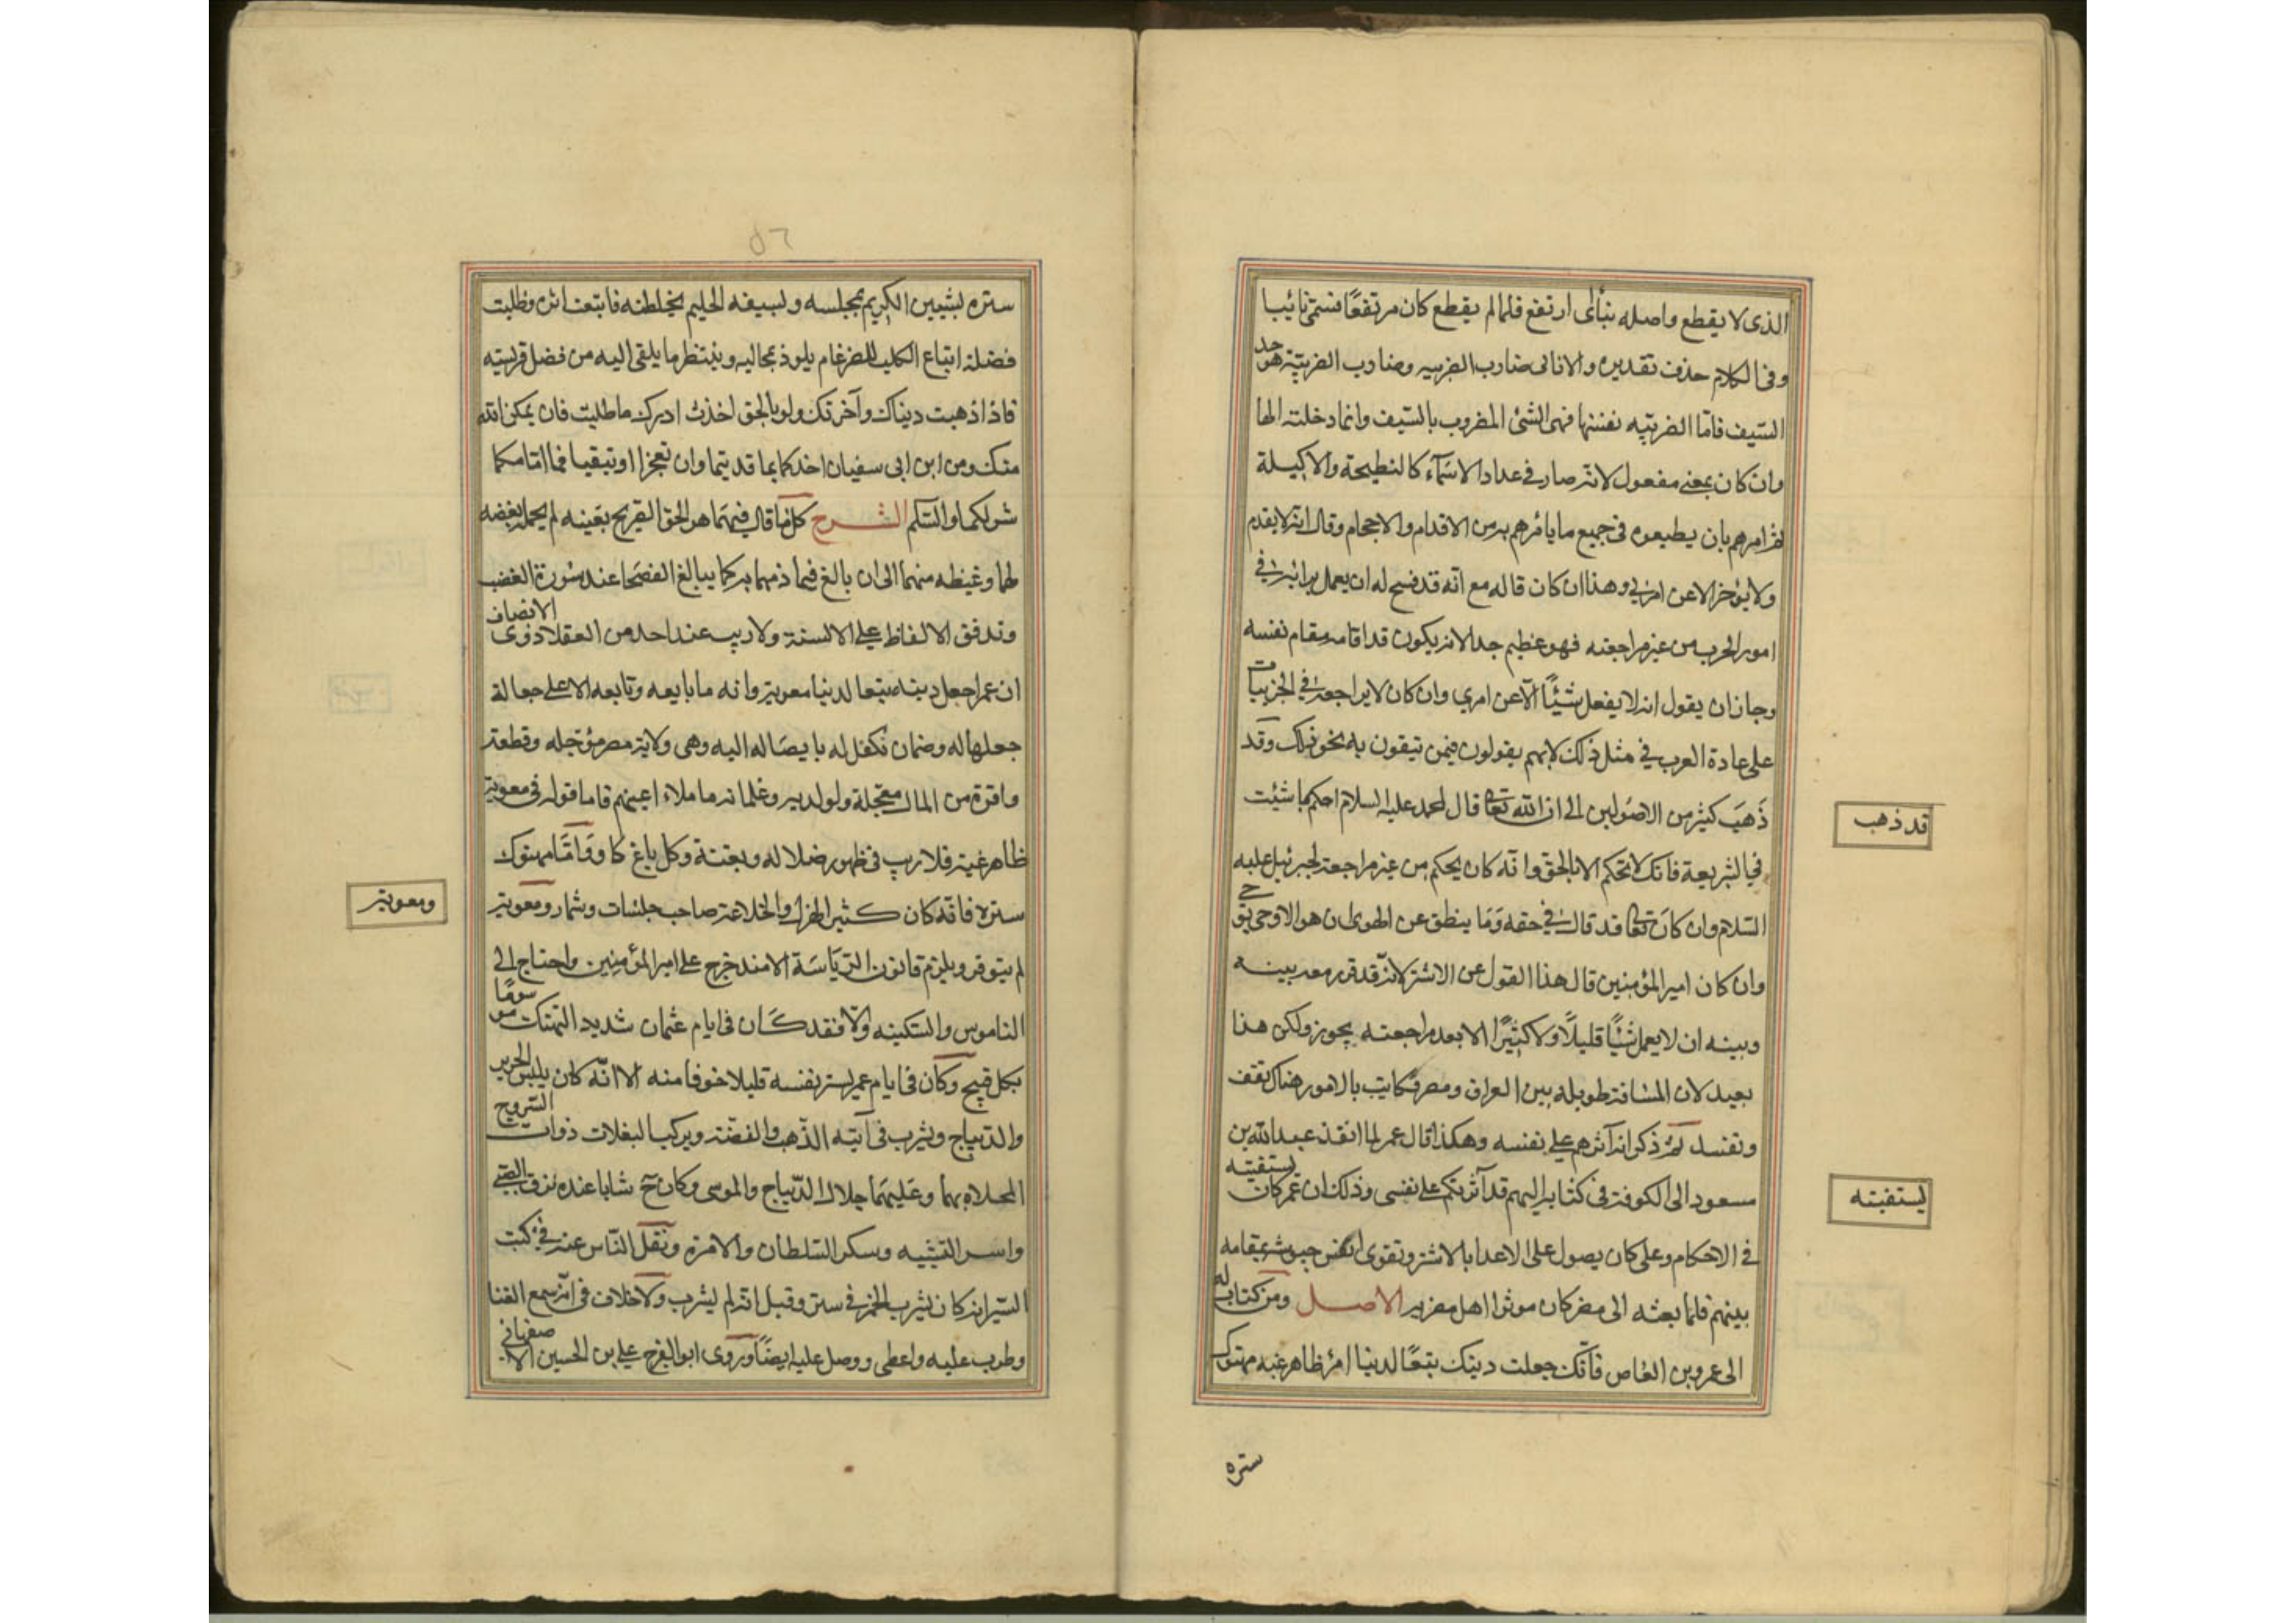 الذى لا يقطع واصله نبا اى ارتفع فلما لم يقطع كان مرتفعًا فسمى نائيا
وفى الكلام حذف تقديره ولا نابى ضارب الضريبه وضارب الضريبة هو حد
السيف فاما الضريبه نفسها فهى الشئ المضروب بالسيف وانما دخلته الها
وان كان بمعنى مفعول لانه صار فى عداد الاسمآء كالنطيحة والاكيلة
ثم امرهم بان يطيعوه فى جميع ما يامرهم به من الاقدام والاحجام وقال انه لا يقدم
ولا يؤخر الا عن امرى وهذا ان كان قاله مع انه قد فسح له ان يعمل برايه فى
امور الحرب من غير مراجعته فهو عظيم جدا لانه يكون قد اقامه مقام نفسه
وجاز ان يقول انه لا يفعل شيئًا الا عن امرى وان كان لا يراجعه فى الجزييات
على عادة العرب فى مثل ذلك لانهم يقولون فيمن يثقون به نحو ذلك وقد
ذَهَبَ كثير من الاصوليين الى ان الله تعا قال لمحمد عليه السلام احكم بما شئت
فى الشريعة فانك لا تحكم الا بالحق وانه كان يحكم من غير مراجعته لجبرئيل عليه
السلام وان كان تعا قد قال فى حقه وَمَا ينطق عن الهوى ان هو الا وحى يوحى
وان كان امير المؤمنين قال هذا القول عن الاشتر لانه قد قرر معه بينه
وبينه ان لا يعمل شيئًا قليلًا ولا كثيرًا الا بعد مراجعته يجوز ولكن هذا
بعيد لان المسافة طويلة بين العراق ومصر وكانت بالامور هناك تقف
وتفسد ثم ذكر انه آثرهم على نفسه وهكذا قال عمر لما انفذ عبد الله بن
مسعود الى الكوفة فى كتابه اليهم قد آثرتكم على نفسى وذلك ان عمر كان يستفتيه
فى الاحكام وعلى كان يصول على الاعدا بالاشتر وتقوى انفس جيوشه بمقامه
بينهم فلما بعثه الى مصر كان موثرا اهل مصر به الاصل ومن كتاب له
الى عمرو بن العاص فانّك جعلت دينك تبعًا لدنيا امرئ ظاهر غيه مهتوك
ستره
قد ذهب
يستفتيه
٥٦
ستره يشين الكريم بمجلسه ويسيفه الحليم بخلطته فاتبعت اثره وطلبت
فضله اتباع الكلب للضرغام يلوذ بمخالبه وينتظر ما يلقى اليه من فضل فريسته
فاذا اذهبت دنياك وآخرتك ولو بالحق اخذت ادركت ما طلبت فان يمكن الله
منك ومن ابن ابى سفيان اجزكما بما قدمتما وان تعجزا او تبقيا فما امامكما
شر لكما والسلم الشرح كلما قال فيهما هو الحق الصريح بعينه لم يحمله بغضه
لهما وغيظه منهما الى ان بالغ فيما ذمهما به كما يبالغ الفصحا عند سورة الغضب
وتدفق الالفاظ على الالسنة ولا ريب عند احد من العقلا ذوى الانصاف
ان عمرا جعل دينه تبعا لدنيا معوية وانه ما بايعه وتابعه الا على جعالة
جعلها له وضمان تكفل له بايصاله اليه وهى ولاية مصر مؤجله وقطعة
وافرة من المال معجلة ولولديه وغلمانه ما ملاء اعينهم فاما قوله فى معوية
ظاهر غيه فلا ريب فى ظهور ضلاله وبغيه وكل باغ غاو وَامَّا مهتوك
ستره فانه كان كثير الهزل والخلاعة صاحب جلسات وسمار ومعوية
لم يتوقر ويلزم قانون الريَاسَة الا منذ خرج على امير المؤمنين واحتاج الى
الناموس والسكينه والا فقد كان فى ايام عثمان شديد التهتك موسومًا
بكل قبيح وكان فى ايام عمر يستر نفسه قليلا خوفا منه الا انه كان يلبس الحرير
والديباج ويشرب فى آنية الذهب والفضة ويركب البغلات ذوات السروج
المحلاة بهما وعليهما جلال الديباج والوشى وكان ح شابا عنده نزق الصبى
واثر الشبيبه وسكر السلطان والامرة ونقل الناس عنه فى كتب
السير انه كان يشرب الخمر فى ستر وقيل انه لم يشرب ولا خلاف فى انه سمع الغنا
وطرب عليه واعطى ووصل عليه ايضًا وروى ابو الفرج على بن الحسين الاصفهانى
ومعوية